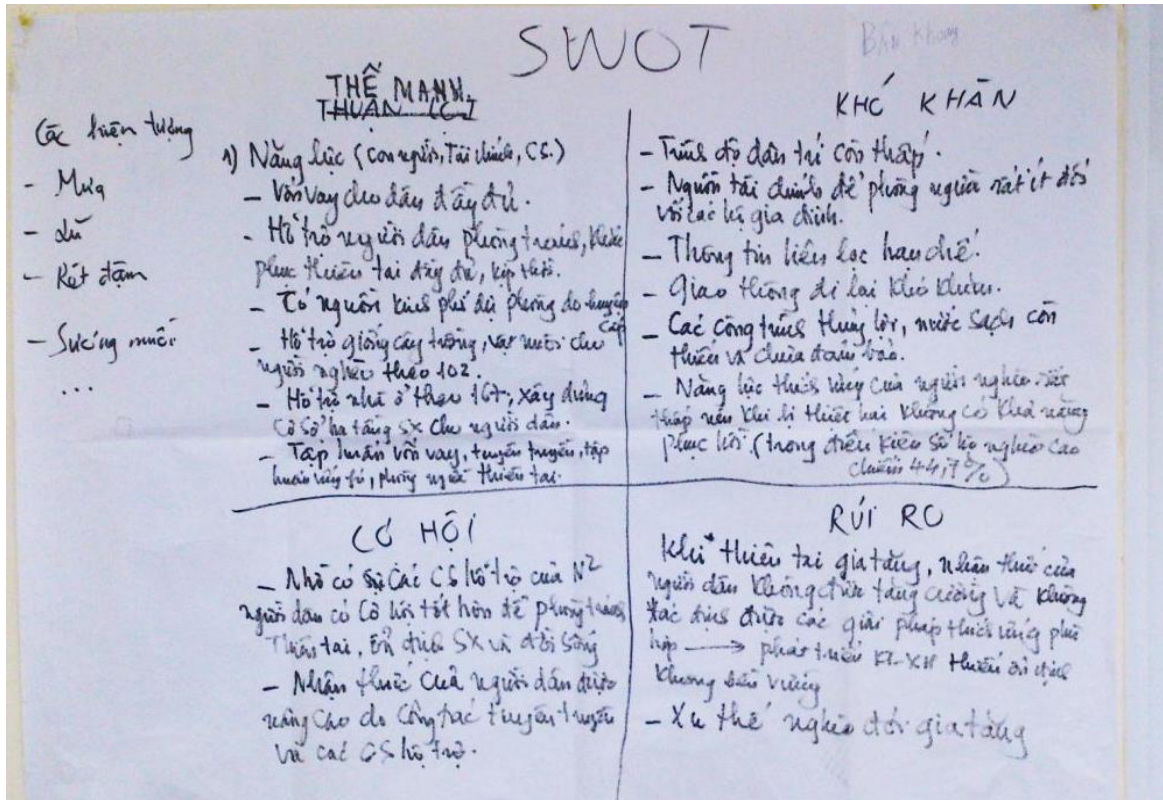 SWOT
Bản Khong
Các hiện tượng
- Mưa
- Lũ
- Rét đậm
- Sương muối
...
THẾ MẠNH
THUẬN LỢI
1) Năng lực (con người, Tài chính, CS.)
- Vốn vay cho dân đầy đủ.
- Hỗ trợ người dân phòng tránh, khắc
phục thiên tai đầy đủ, kịp thời.
- Có nguồn kinh phí dự phòng do huyện
cấp
- Hỗ trợ giống cây trồng, vật nuôi cho
người nghèo theo 102.
- Hỗ trợ nhà ở theo 167, xây dựng
cơ sở hạ tầng SX cho người dân.
- Tập huấn vốn vay, tuyên truyền, tập
huấn ứng phó, phòng ngừa thiên tai.
KHÓ KHĂN
- Trình độ dân trí còn thấp.
- Nguồn tài chính để phòng ngừa rất ít đối
với các hộ gia đình.
- Thông tin liên lạc hạn chế.
- Giao thông đi lại khó khăn.
- Các công trình thủy lợi, nước sạch còn
thiếu và chưa đảm bảo.
- Năng lực thích ứng của người nghèo rất
thấp nên khi bị thiệt hại không có khả năng
phục hồi (trong điều kiện số hộ nghèo cao
chiếm 44,7%)
CƠ HỘI
- Nhờ có sự các CS hỗ trợ của N²
người dân có cơ hội tốt hơn để phòng tránh
Thiên tai, ổn định SX và đời sống
- Nhận thức của người dân được
nâng cao do công tác tuyên truyền
và các CS hỗ trợ.
RỦI RO
Khi thiên tai gia tăng, nhận thức của
người dân không được tăng cường và không
xác định được các giải pháp thích ứng phù
hợp → phát triển KT-XH thiếu ổn định
không bền vững
- Xu thế nghèo đói gia tăng